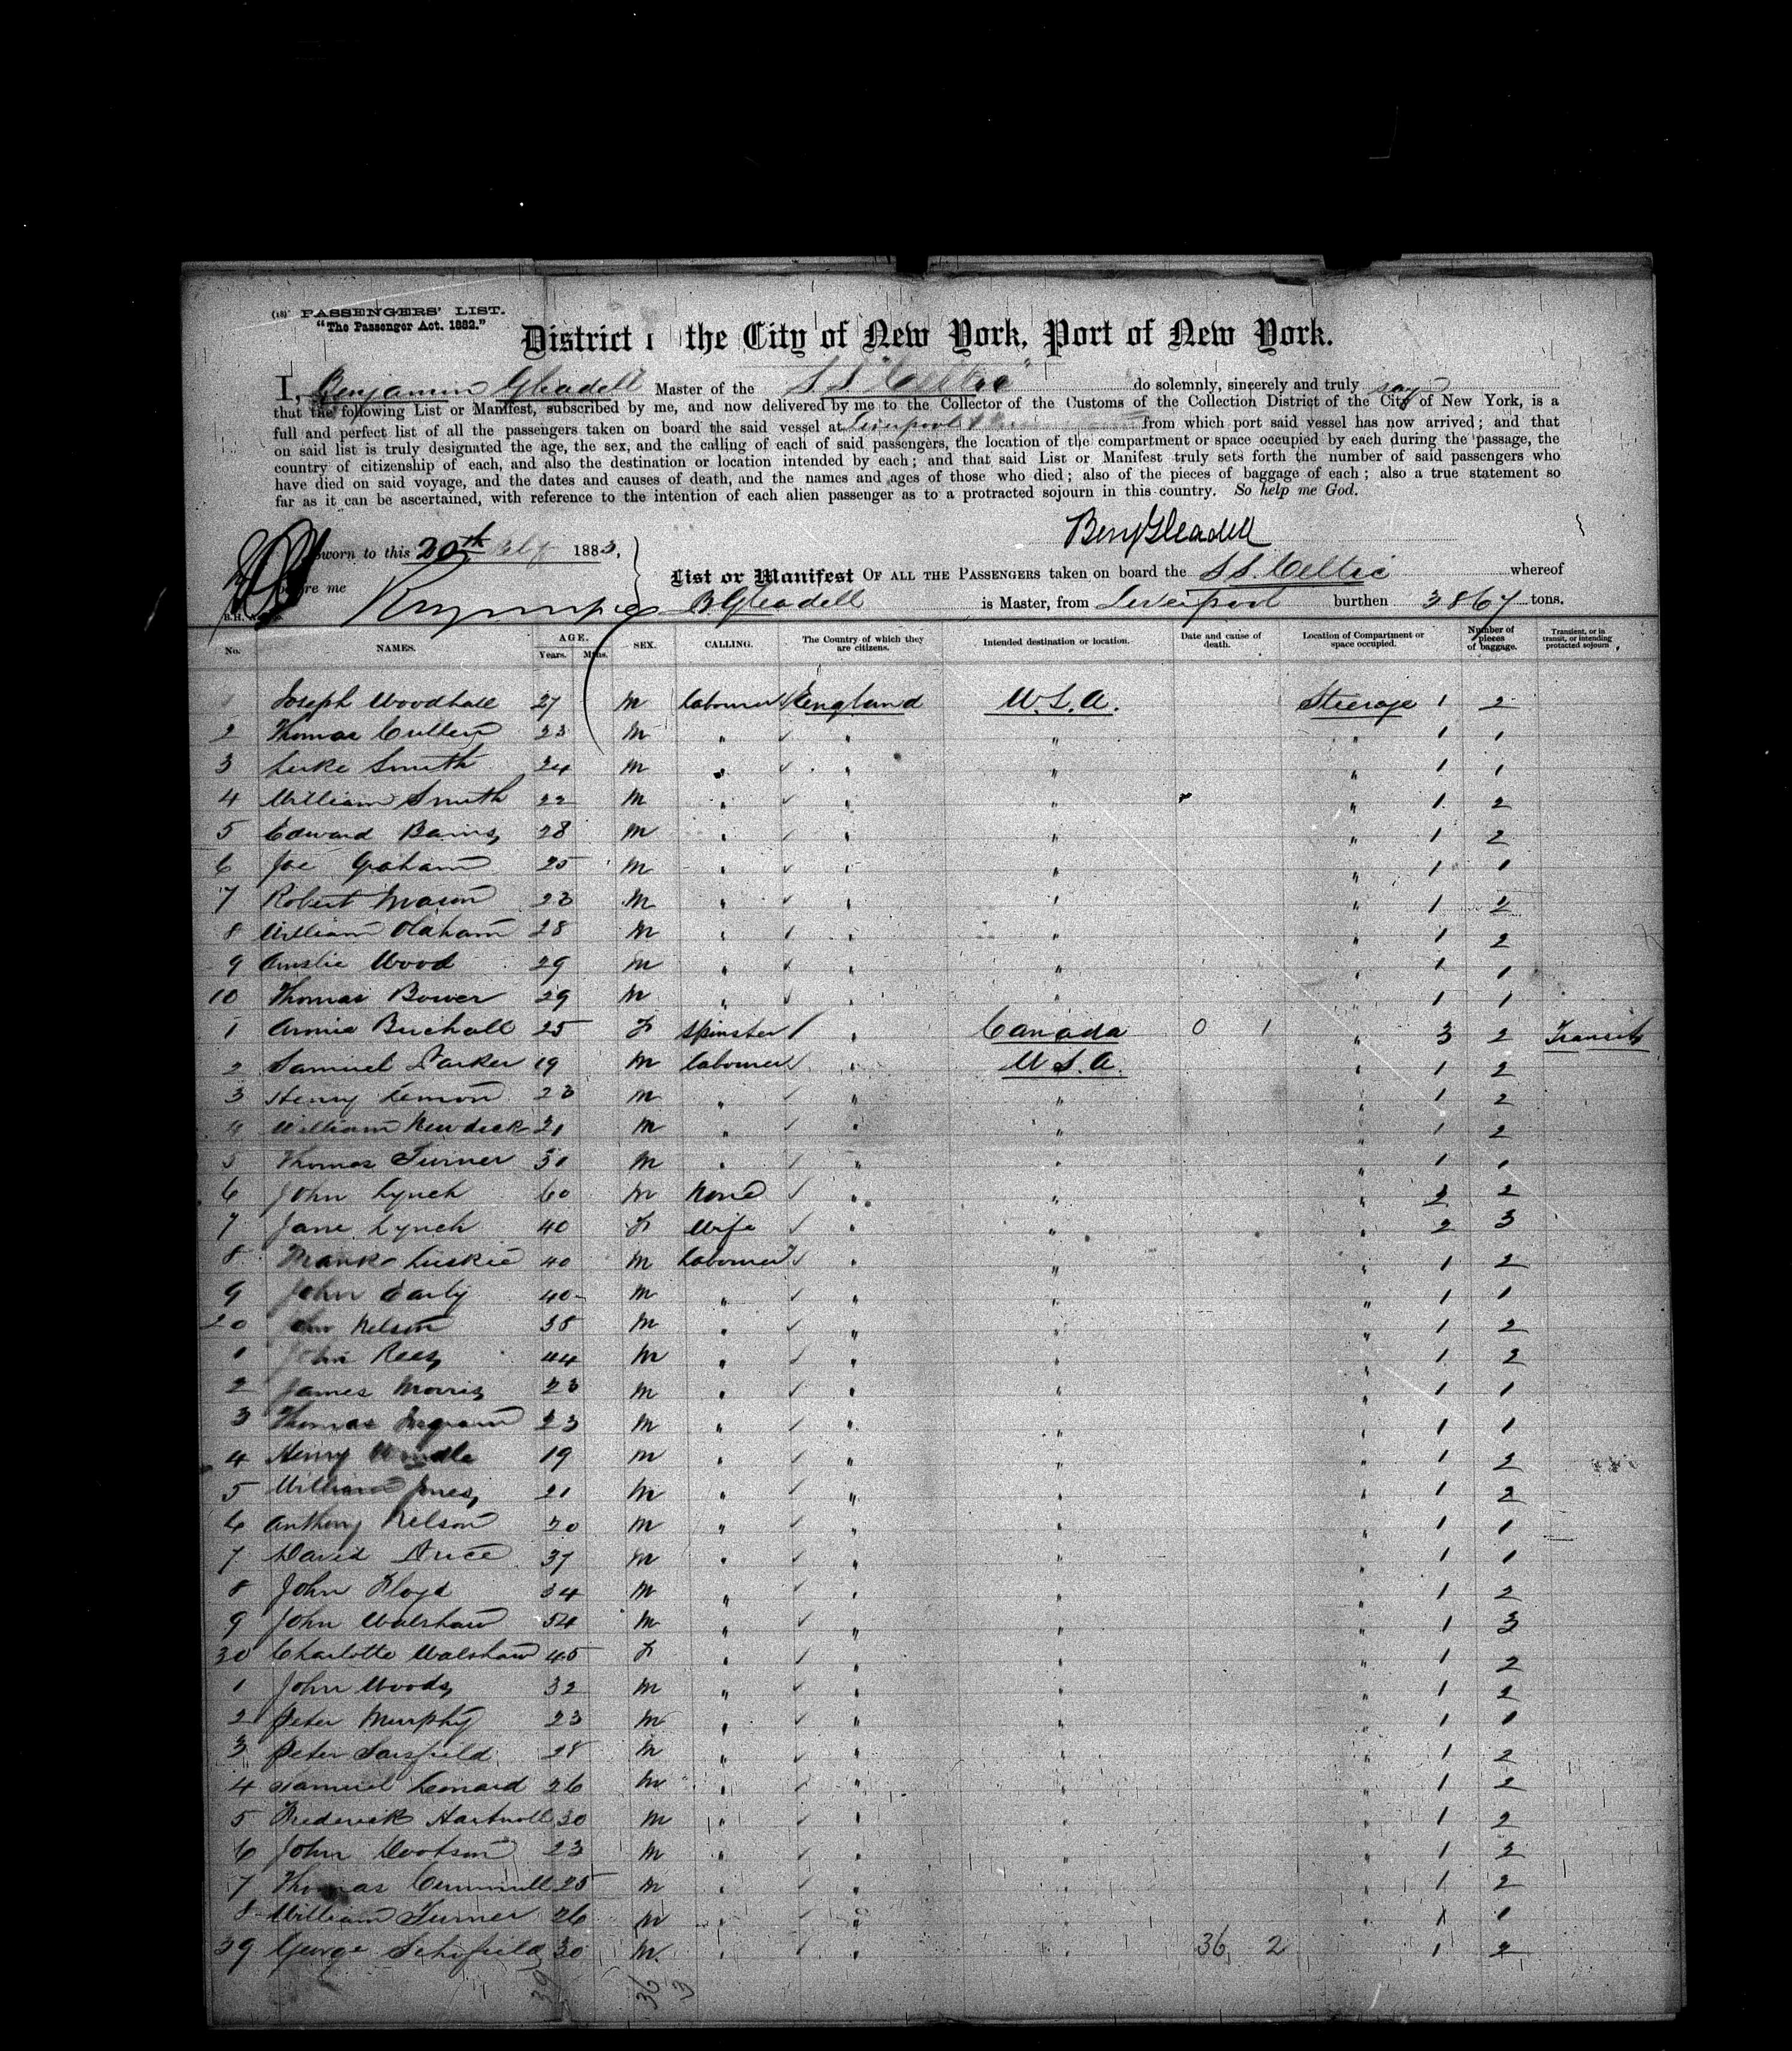 (18) PASSENGERS' LIST.
"The Passenger Act. 1882."
District the City of New York, Port of New York.
I, Benjamin Gleadell Master of the S.S. "Celtic" do solemnly, sincerely and truly say
that the following List or Manifest, subscribed by me, and now delivered by me to the Collector of the Customs of the Collection District of the City of New York, is a
full and perfect list of all the passengers taken on board the said vessel at Liverpool from which port said vessel has now arrived; and that
on said list is truly designated the age, the sex, and the calling of each of said passengers, the location of the compartment or space occupied by each during the passage, the
country of citizenship of each, and also the destination or location intended by each; and that said List or Manifest truly sets forth the number of said passengers who
have died on said voyage, and the dates and causes of death, and the names and ages of those who died; also of the pieces of baggage of each; also a true statement so
far as it can be ascertained, with reference to the intention of each alien passenger as to a protracted sojourn in this country. So help me God.
Benj Gleadell
Sworn to this 20th 1883,
before me
List or Manifest OF ALL THE PASSENGERS taken on board the S.S. Celtic whereof
B Gleadell is Master, from Liverpool burthen 3867 tons.
No. NAMES. AGE. Years. Mths. SEX. CALLING. The Country of which they are citizens. Intended destination or location. Date and cause of death. Location of Compartment or space occupied. Number of pieces of baggage. Transient, or in transit, or intending protacted sojourn
1 Joseph Woodhall 27 M labourer England U.S.A. Steerage 1 2
2 Thomas Cullen 23 M " " " " 1 1
3 Luke Smith 24 M " " " " 1 1
4 William Smith 22 M " " " " 1 2
5 Edward Bains 28 M " " " " 1 2
6 Joe Graham 25 M " " " " 1 1
7 Robert Mason 23 M " " " " 1 2
8 William Oldham 28 M " " " " 1 2
9 Amslie Wood 29 M " " " " 1 1
10 Thomas Bower 29 M " " " " 1 1
1 Annie Buchall 25 F Spinster " Canada 0 1 " 3 2 Transit
2 Samuel Parker 19 M labourer " U S.A. " 1 2
3 Henry Lemon 23 M " " " " 1 2
4 William Newdick 21 M " " " " 1 2
5 Thomas Turner 31 M " " " " 1 1
6 John Lynch 60 M None " " " 2 2
7 Jane Lynch 40 F Wife " " " 2 3
8 Frank Luskie 40 M labourer " " " 1 2
9 John Early 40 M " " " " 1 1
20 John Nelson 38 M " " " " 1 2
1 John Rees 44 M " " " " 1 2
2 James Morris 23 M " " " " 1 1
3 Thomas Ingram 23 M " " " " 1 1
4 Henry 19 M " " " " 1 2
5 William Jones 21 M " " " " 1 2
6 Anthony Nelson 20 M " " " " 1 1
7 David Price 37 M " " " " 1 1
8 John Floyd 34 M " " " " 1 2
9 John Walshaw 54 M " " " " 1 3
30 Charlotte Walshaw 45 F " " " " 1 2
1 John Woods 32 M " " " " 1 2
2 Peter Murphy 23 M " " " " 1 1
3 Peter Sarsfield 28 M " " " " 1 2
4 Samuel Leonard 26 M " " " " 1 2
5 Frederick Hartnoll 30 M " " " " 1 2
6 John Dootson 23 M " " " " 1 2
7 Thomas 25 M " " " " 1 2
8 William Turner 26 M " " " " 1 1
39 George Schofield 30 M " " " 36 2 1 2
39 36 3